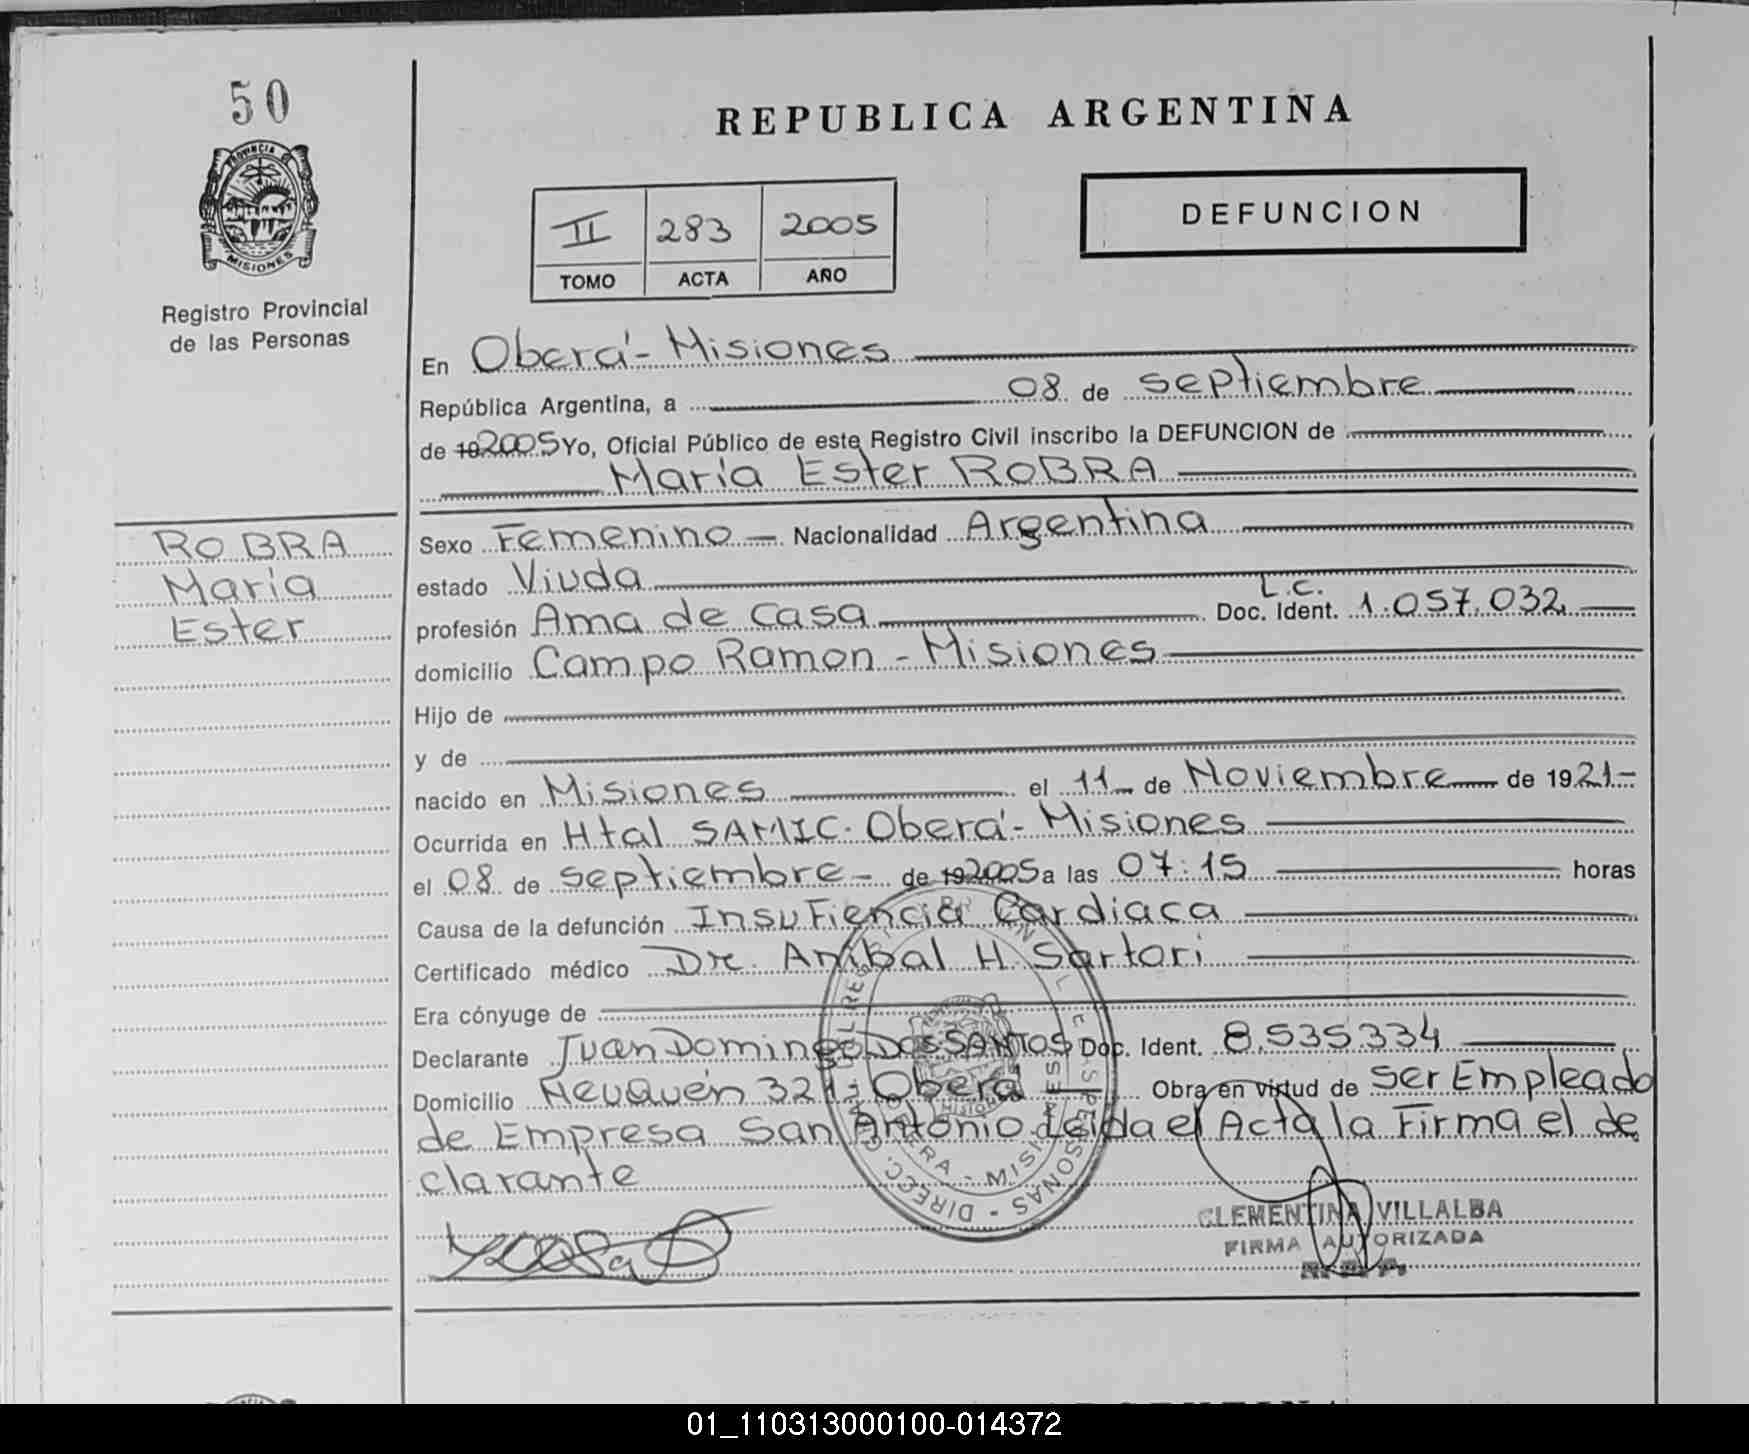 50
PROVINCIA DE
MISIONES
Registro Provincial
de las Personas
ROBRA
María
Ester
REPUBLICA ARGENTINA
II 283 2005
TOMO ACTA AÑO
DEFUNCION
En Oberá - Misiones
República Argentina, a 08 de septiembre
de 19 2005 Yo, Oficial Público de este Registro Civil inscribo la DEFUNCION de
María Ester ROBRA
Sexo Femenino Nacionalidad Argentina
estado Viuda
profesión Ama de casa Doc. Ident. L.C. 1.057.032
domicilio Campo Ramon - Misiones
Hijo de
y de
nacido en Misiones el 11 de Noviembre de 1921-
Ocurrida en Htal SAMIC. Oberá - Misiones
el 08 de septiembre - de 19 2005 a las 07:15 horas
Causa de la defunción Insufiencia Cardiaca
Certificado médico Dr. Anibal H. Sartori
Era cónyuge de
Declarante Juan Domingo Dos SANTOS Doc. Ident. 8.535.334
Domicilio Neuquén 321 - Oberá Obra en virtud de ser Empleado
de Empresa San Antonio Leida el Acta la Firma el de
clarante
CLEMENTINA VILLALBA
FIRMA AUTORIZADA
01_110313000100-014372